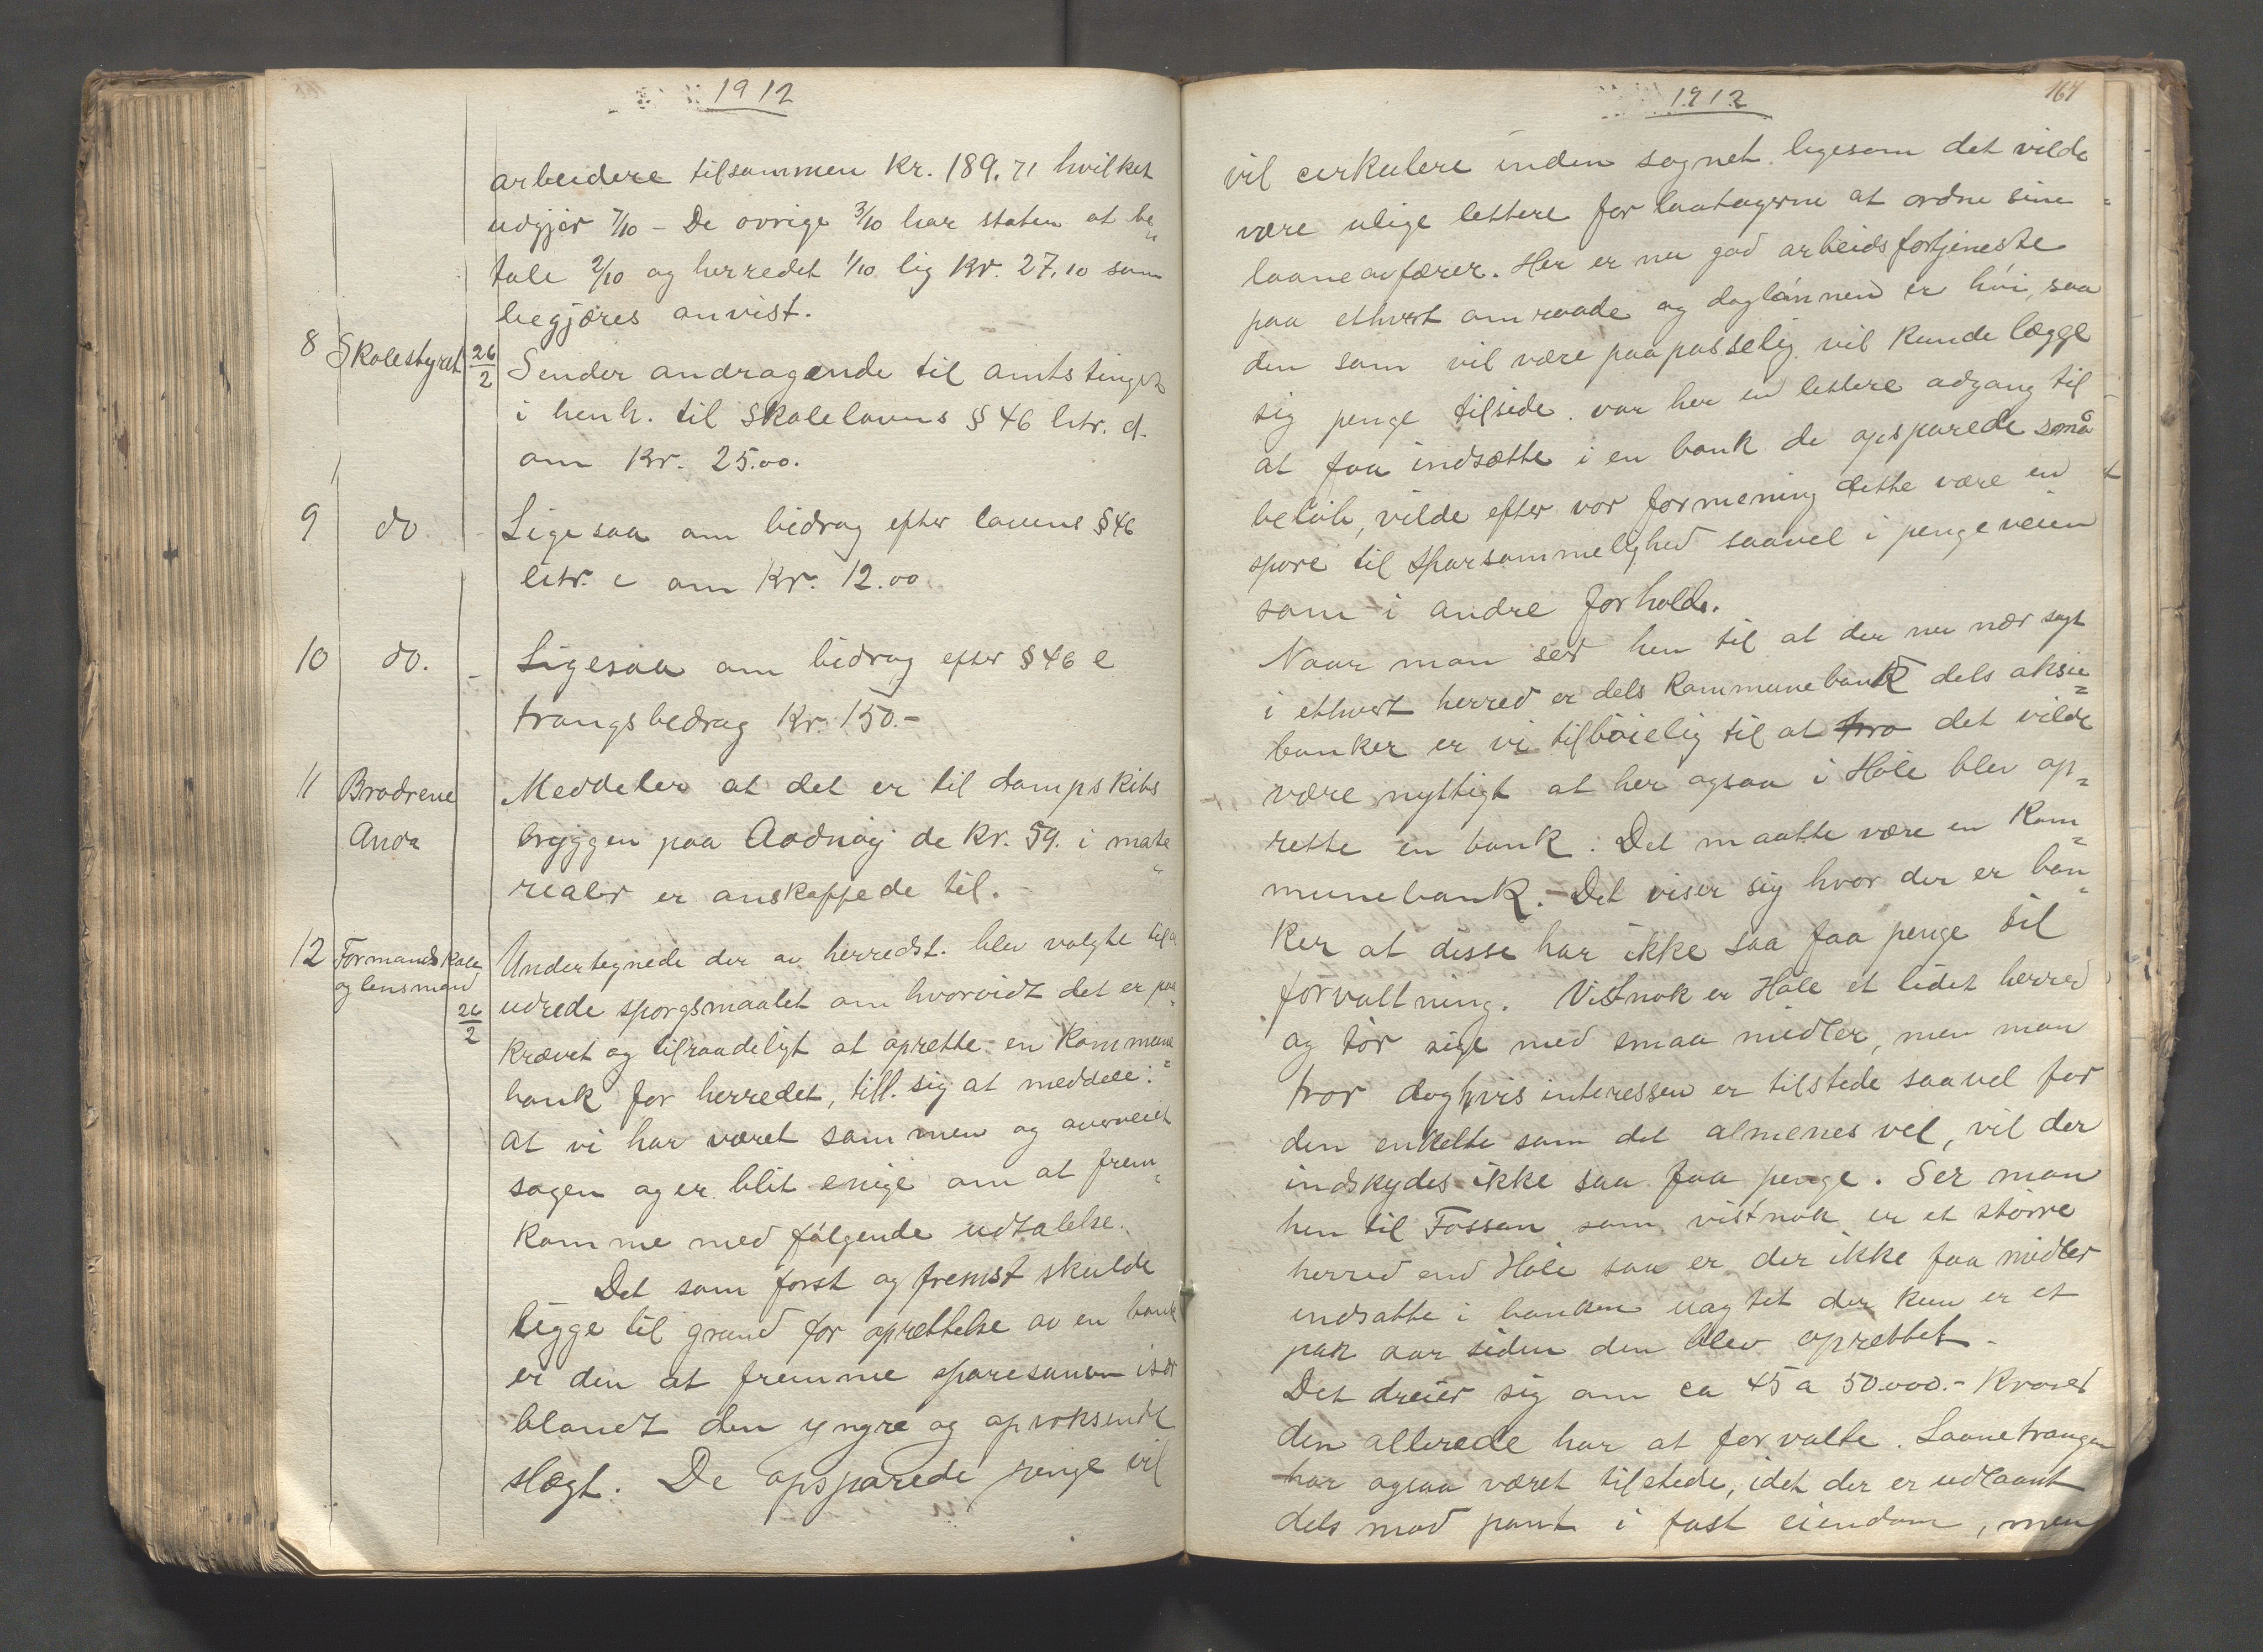 1912
arbeidere tilsammen Kr. 189.71 hvilket
udgjør 7/10 - De øvrige 3/10 har staten at be„
tale 2/10 og herredet 1/10 lig Kr. 27.10 som
begjæres anvist.
8 Skolestyret 26/2 Sender andragende til amtstinget
i henh. til Skolelovens § 46 litr. d.
om Kr. 25.00.
9 do - Ligesaa om bidrag efter lovens § 46
litr. c om Kr. 12.00
10 do. - Ligesaa om bidrag efter § 46 e
trangsbedrag Kr. 150.-
11 Brødrene Meddeler at det er til dampskibs
Anda bryggen paa Aadnøy de Kr. 59. i mate„
rialer er anskaffede til.
12 Formandskab Undertegnede der av herredst. blev valgte til at
og lensmand 26/2 udrede spørgsmaalet om hvorvidt det er paa„
krævet og tilraadeligt at oprette en Kommune„
bank for herredet, till. sig at meddele:
at vi har været sammen og overveiet
sagen og er blit enige om at frem„
komme med følgende udtalelse.
Det som først og fremst skulde
ligge til grund for oprettelse av en bank
er den at fremme sparesansen især
blandt den yngre og opvoksende
slægt. De opsparede penge vil
1912
164
vil cirkulere inden sognet ligesom det vilde
være ulige lettere for laantagerne at ordne sine
laaneavfærer. Her er nu god arbeidsfortjeneste
paa ethvert omraade og daglønnen er høi, saa
den som vil være paapasselig vil kunde lægge
sig penge tilside. var her en lettere adgang til
at faa indsætte i en bank de opsparede små
beløb, vilde efter vor formening dette være en
spore til sparsommelighed saavel i pengeveien
som i andre forhold.
Naar man ser hen til at der nu nær sagt
i ethvert herred er dels Kommunebank dels aksie„
banker er vi tilbøielig til at tro det vilde
være nyttigt at her ogsaa i Høle blev op„
rette en bank. Det maatte være en Kom„
munebank. - Det viser sig hvor der er ban„
ker at disse har ikke saa faa penge til
forvaltning. Vistnok er Høle et lidet herred
og tør sige med smaa midler, men man
tror dog hvis interessen er tilstede saavel for
den enkelte som det almenes vel, vil der
indskydes ikke saa faa penge. Ser man
hen til Fossan som vistnok er et større
herred end Høle saa er der ikke faa midler
indsatte i banken uagtet der kun er et
par aar siden den blev oprettet.
Det dreier sig om ca 45 a 50.000.- Kroner
den allerede har at forvalte. Laanetrangen
har ogsaa været tilstede, idet der er udlaant
dels mod pant i fast eiendom, men